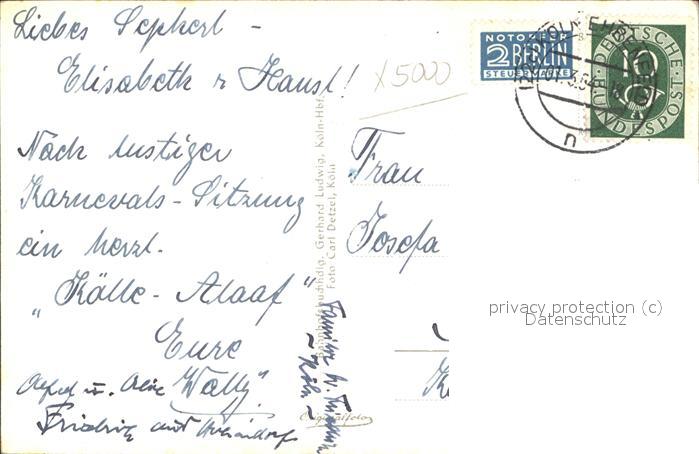 Liebes Sepherl -
Elisabeth u Hansl!
Nach lustiger
Karnevals-Sitzung
ein herzl.
"Kölle-Alaaf"
Eure
Wally
Friedrich und
x5000
NOTOPFER
2 BERLIN
STEUERMARKE
DEUTSCHE
10
BUNDESPOST
n
Frau
Josefa
privacy protection (c)
Datenschutz
Bahnhofsbuchhdlg. Gerhard Ludwig, Köln-Hbf.
Foto Carl Detzel, Köln
~ Köln ~
Originalfoto